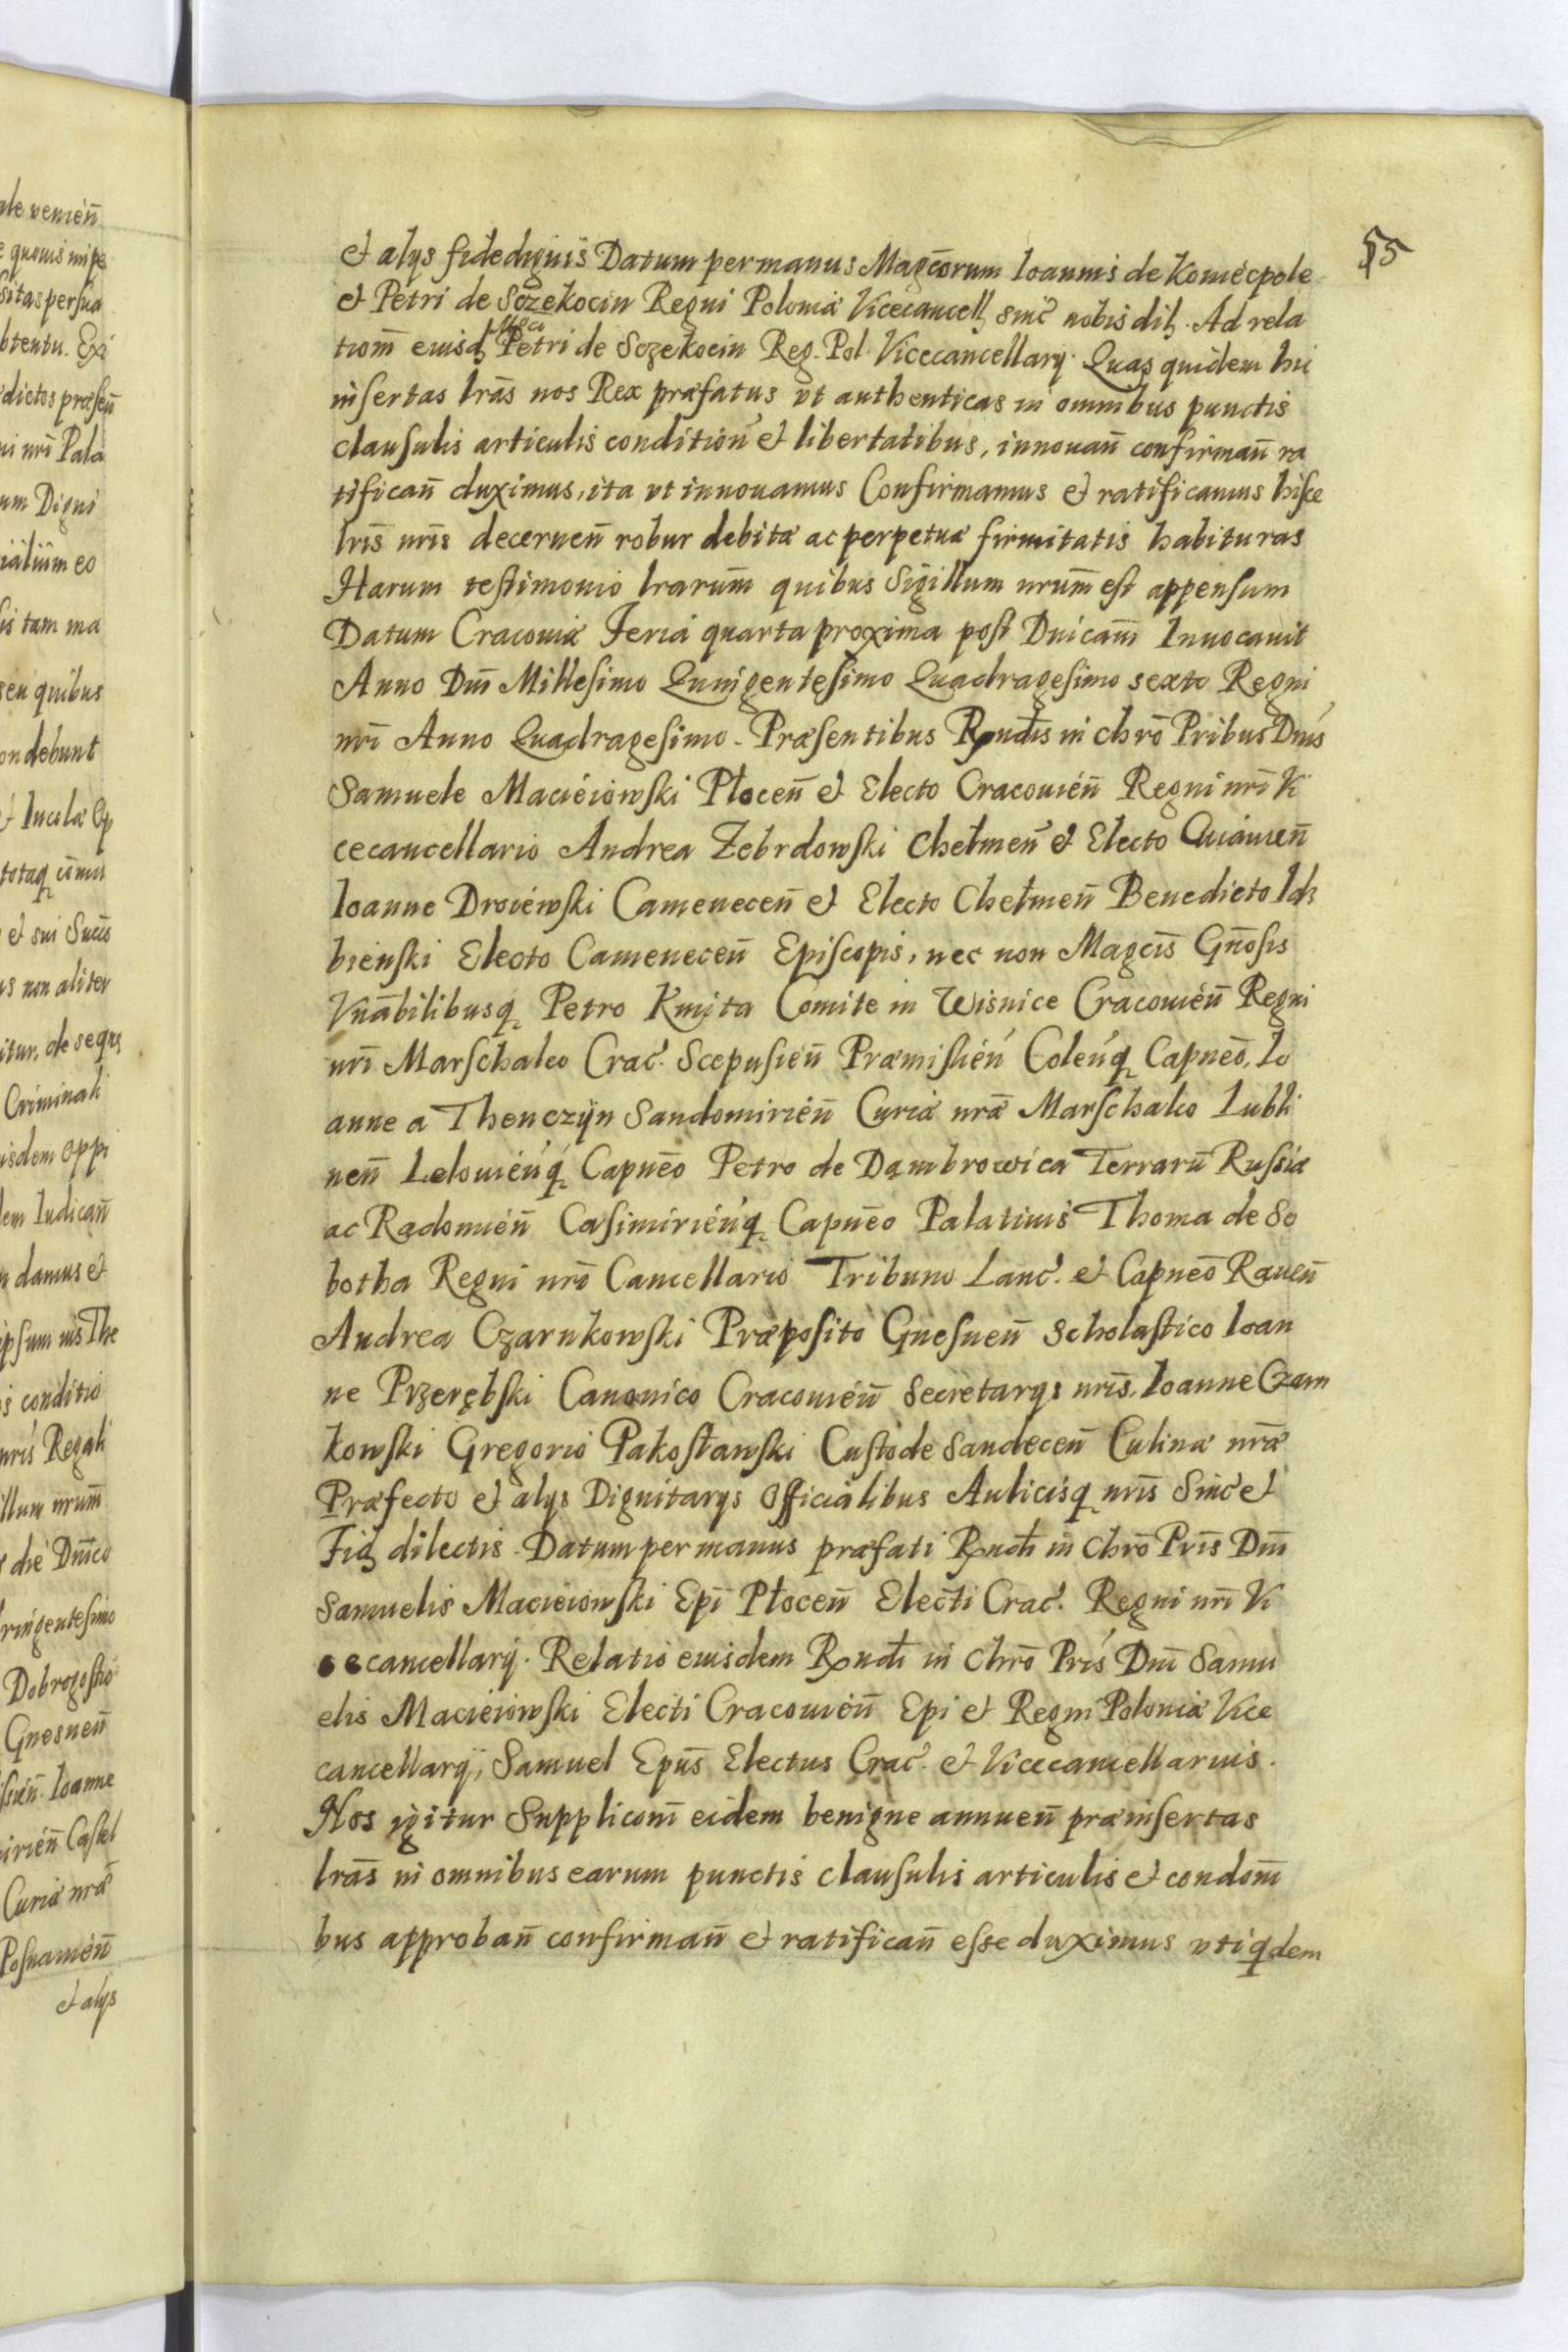 55
et alys fidedignis Datum per manus Magcorum Ioannis de Koniecpole
et Petri de Sczekocin Regni Poloniæ Vicecancell sinc nobis dil. Ad rela
tiom eiusd Petri de Sczekocin Reg. Pol. Vicecancellary. Quas quidem hic
insertas lras nos Rex præfatus vt authenticas in omnibus punctis
clausulis articulis condition et libertatibus, innouan confirman ra
tifican duximus, ita vt innouamus Confirmamus et ratificamus hisce
lris nris decernen robur debitæ ac perpetuæ firmitatis habituras
Harum testimonio lrarum quibus Sigillum nrum est appensum
Datum Cracouiæ Feria quarta proxima post Dnicam Inuocauit
Anno Dni Millesimo Quingentesimo Quadragesimo sexto Regni
nri Anno Quadragesimo. Præsentibus Rndis in chro Pribus Dnis
Samuele Macieiowski Płocen et Electo Cracouien Regni nri Vi
cecancellario Andrea Zebrdowski Chełmen et Electo Cuiauien
Ioanne Droiewski Camenecen et Electo Chełmen Benedicto Idz
bienski Electo Camenecen Episcopis, nec non Magcis Gnosis
Vnabilibusq Petro Kmita Comite in Wisnice Cracouien Regni
nri Marschalco Crac. Scepusien Præmislien Colenq Capneo, Io
anne a Thenczijn Sandomirien Curiæ nræ Marschalco Lubli
nen Lelouienq Capneo Petro de Dambrowica Terraru Russiæ
ac Radomien Casimirienq Capneo Palatinis Thoma de So
botha Regni nri Cancellario Tribuno Lanc. et Capneo Rauen
Andrea Czarnkowski Præposito Gnesnen Scholastico Ioan
ne Przerębski Canonico Cracouien Secretarys nris, Ioanne Czarn
kowski Gregorio Pakosławski Custode Sandecen Culinæ nræ
Præfecto et alys Dignitarys Officialibus Aulicisq nris Sinc et
Fid dilectis. Datum per manus præfati Rndi in Chro Pris Dni
Samuelis Macieiowski Epi Płocen Electi Crac. Regni nri Vi
cecancellary. Relatio eiusdem Rndi in Chro Pris Dni Samu
elis Macieiowski Electi Cracouien Epi et Regni Poloniæ Vice
cancellarÿ, Samuel Epus Electus Crac. et Vicecancellarius.
Nos igitur Supplicom eidem benigne annuen præinsertas
lras in omnibus earum punctis clausulis articulis et condom
bus approban confirman et ratifican esse duximus vtiqdem